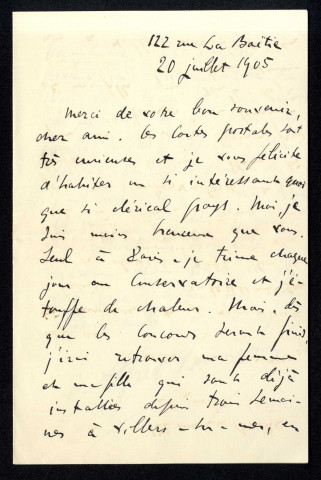 122 rue La Boëtie
20 juillet 1905
Merci de votre bon souvenir,
cher ami. Les cartes postales sont
très curieuses et je vous félicite
d'habiter un si intéressant quoi
que si clérical pays. Moi, je
suis moins heureux que vous.
Seul à Paris, je trime chaque
jour au Conservatoire et j'é-
touffe de chaleur. Mais, dès
que les concours seront finis,
j'irai retrouver ma femme
et ma fille qui sont déjà
installées depuis trois semai-
nes à Villers-sur-mer, en